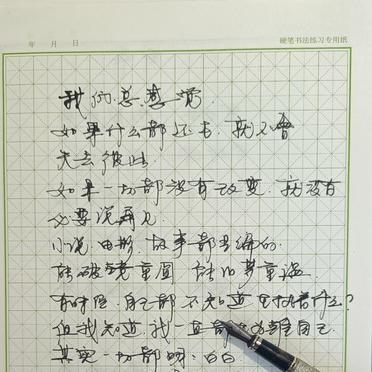 年 月 日 硬笔书法练习专用纸
我们总感觉
如果什么都还在,就不会
失去彼此
如果一切都没有改变,就没有
必要说再见
小说,电影,故事都是编的
能破镜重圆 能旧梦重温
有时候,自己都不知道 什么?
但我知道,我一直都 自己
其实一切都明明白白